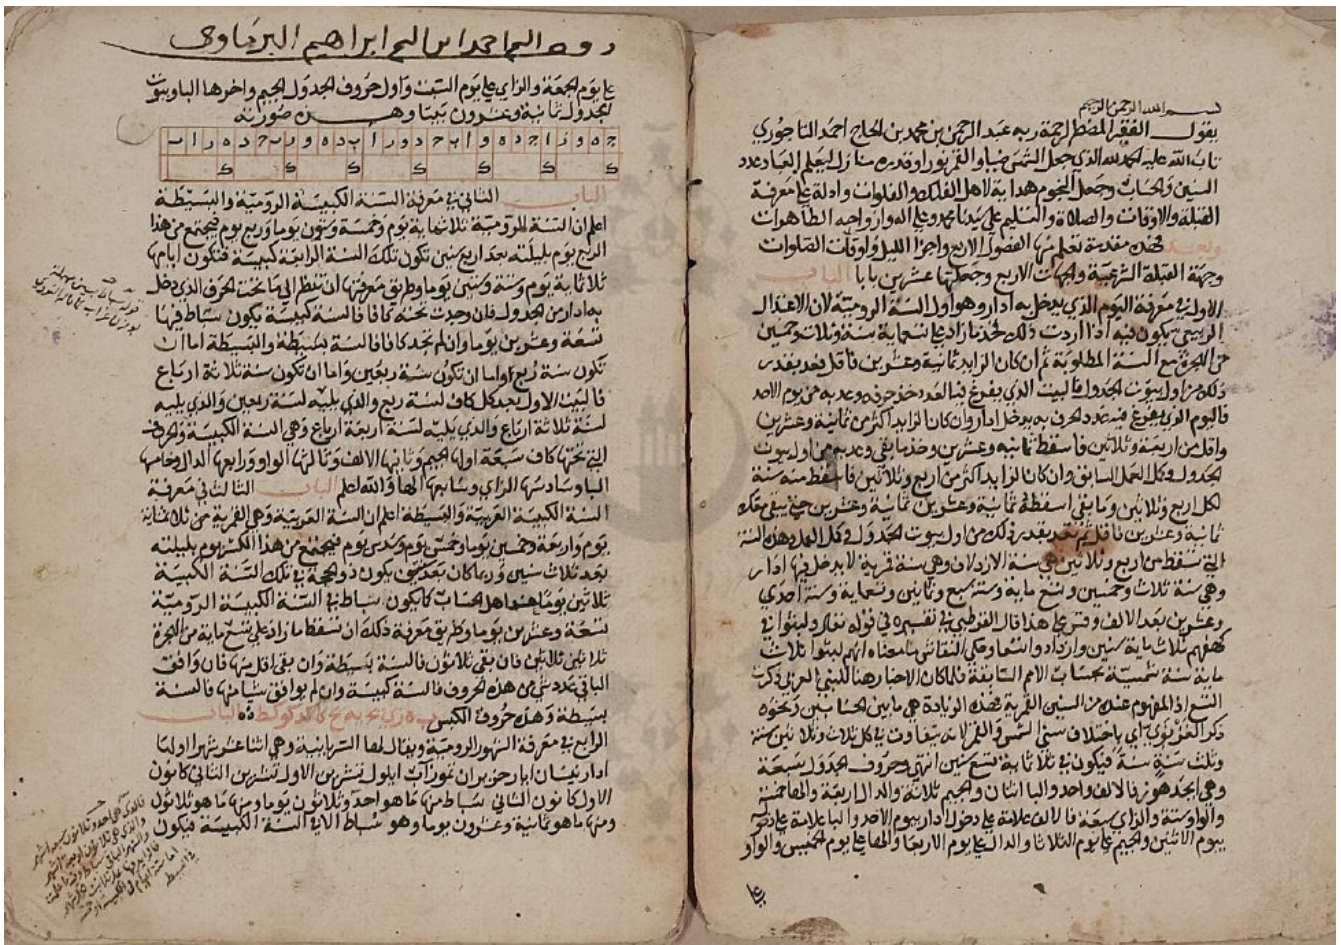 بسم الله الرحمن الرحيم
يقول الفقير المضطر لرحمة ربه عبد الرحمن بن محمد بن الحاج احمد التاجوري
تاب الله عليه الحمد لله الذي جعل الشمس ضياء والقمر نورا وقدره منازل ليعلم العباد عدد
السنين والحساب وجعل النجوم هداية لاهل الفلك والفلوات وادلة على معرفة
القبلة والاوقات والصلاة والتسليم على سيدنا محمد وعلى اله وازواجه الطاهرات
وبعد فهذه مقدمة تعلم منها الفصول الاربع واجزا الليل واوقات الصلوات
وجهة القبلة الشرعية والجهات الاربع وجعلتها عشرين بابا الباب
الاول في معرفة اليوم الذي يدخل به ادار وهو اول السنة الرومية لان الاعتدال
الربيعي يكون فيه اذا اردت ذلك فخذ ما زاد على تسعماية سنة وثلاث وخمسين
من الهجرة مع السنة المطلوبة ثم ان كان الزايد ثمانية وعشرين فاقل فعد بقدر
ذلك من اول بيوت الجدول فالبيت الذي يفرغ فيه العدد خذ حرفه وعد به من يوم الاحد
فاليوم الذي يفرغ فيه عدد الحرف به يدخل ادار وان كان الزايد اكثر من ثمانية وعشرين
واقل من اربعة وثلاثين فاسقط ثمانيه وعشرين وخذ ما بقي وعد به من اول بيوت
الجدول وكمل العمل السابق وان كان الزايد اكثر من اربع وثلاثين فاسقط منه سنة
لكل اربع وثلاثين وما بقي اسقطه ثمانية وعشرين ثمانية وعشرين حتى يبقى معك
ثمانية وعشرين فاقل ثم تعد بقدر ذلك من اول بيوت الجدول وكمل العمل وهذه السنة
التي تسقط من اربع وثلاثين هي سنة الازدلاف وهي سنة قمرية لا يدخل فيها ادار
وهي سنة ثلاث وخمسين وتسع ماية وسنة سبع وثمانين وتسعماية وسنة احدي
وعشرين بعد الالف وقس على هذا قال القرطبي في تفسيره في قوله تعالى ولبثوا في
كهفهم ثلاث ماية سنين وازدادوا تسعا وحكى النقاش ما معناه انهم لبثوا ثلاث
ماية سنة شمسية بحساب الامم السابقة فلما كان الاخبار هنا للنبي العربي ذكرت
التسع اذ المفهوم عنده من السنين القمرية فهذه الزيادة هي ما بين الحسابين ونحوه
ذكر الغزنوي اي باختلاف سني الشمس والقمر لانه يتفاوت في كل ثلاث وثلاثين سنة
وثلث سنة سنة فيكون في ثلاثماية تسع سنين انتهى وحروف الجدول سبعة
وهي ابجد هوز فالالف واحد والبا اثنان والجيم ثلاثة والدال اربعة والها خمسة
والواو ستة والزاي سبعة فالالف علامة على دخول ادار بيوم الاحد والبا علامة على دخوله
بيوم الاثنين والجيم على يوم الثلاثا والدال على يوم الاربعا والها على يوم الخميس والواو
على
احمد ابن ابراهيم البرماوي
على يوم الجمعة والزاي على يوم السبت واول حروف الجدول الجيم واخرها البا وبيوت
الجدول ثمانية وعشرون بيتا وهذه صورته
ج ه و ز ا ج د ه و ا ب ج د و ز ا ب د ه و ز ب ج د ه ز ا ب
ك ك ك ك ك ك ك
الباب الثاني في معرفة السنة الكبيسة الرومية والبسيطة
اعلم ان السنة الرومية ثلاثماية يوم وخمسة وستون يوما وربع يوم فيجتمع من هذا
الربع يوم بليلته بعد اربع سنين تكون تلك السنة الرابعة كبيسة فتكون ايامها
ثلاثماية يوم وستة وستين يوما وطريق معرفتها ان تنظر الى ما تحت الحرف الذي دخل
به ادار من الجدول فان وجدت تحته كافا فالسنة كبيسة يكون سباط فيها
تسعة وعشرين يوما وان لم تجد كافا فالسنة بسيطة والبسيطة اما ان
تكون سنة ربع او اما ان تكون سنة ربعين واما ان تكون سنة ثلاثة ارباع
فالبيت الاول بعد كل كاف لسنة ربع والذي يليه لسنة ربعين والذي يليه
لسنة ثلاثة ارباع والذي يليه لسنة اربعة ارباع وهي السنة الكبيسة والحروف
التي تحتها كاف سبعة اولها الجيم وثانيها الالف وثالثها الواو ورابعها الدال وخامسها
البا وسادسها الزاي وسابعها الها والله اعلم الباب الثالث في معرفة
السنة الكبيسة العربية والبسيطة اعلم ان السنة العربية وهي القمرية من ثلاثماية
يوم واربعة وخمسين يوما وخمس يوم وسدس يوم فيجتمع من هذا الكسر يوم بليلته
بعد ثلاث سنين وربما كان بعد سنتين يكون ذو الحجة في تلك السنة الكبيسة
ثلاثين يوما عند اهل الحساب كما يكون سباط في السنة الكبيسة الرومية
تسعة وعشرين يوما وطريق معرفة ذلك ان تسقط ما زاد على تسع ماية من الهجرة
ثلاثين ثلاثين فان بقي ثلاثون فالسنة بسيطة وان بقي اقل منها فان وافق
الباقي عدد شي من هذه الحروف فالسنة كبيسة وان لم يوافق شيا منها فالسنة
بسيطة وهذه حروف الكبس الباب
الرابع في معرفة الشهور الرومية ويقال لها السريانية وهي اثنا عشر شهرا اولها
ادار نيسان ايار حزيران تموز آب ايلول تشرين الاول تشرين الثاني كانون
الاول كانون الثاني سباط منها ما هو احد وثلاثون يوما ومنها ما هو ثلاثون
ومنها ما هو ثمانية وعشرون يوما وهو سباط الا في السنة الكبيسة فيكون